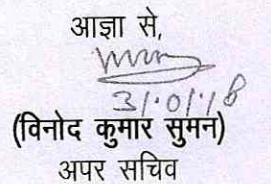 आज्ञा से,
31.01.18
(विनोद कुमार सुमन)
अपर सचिव